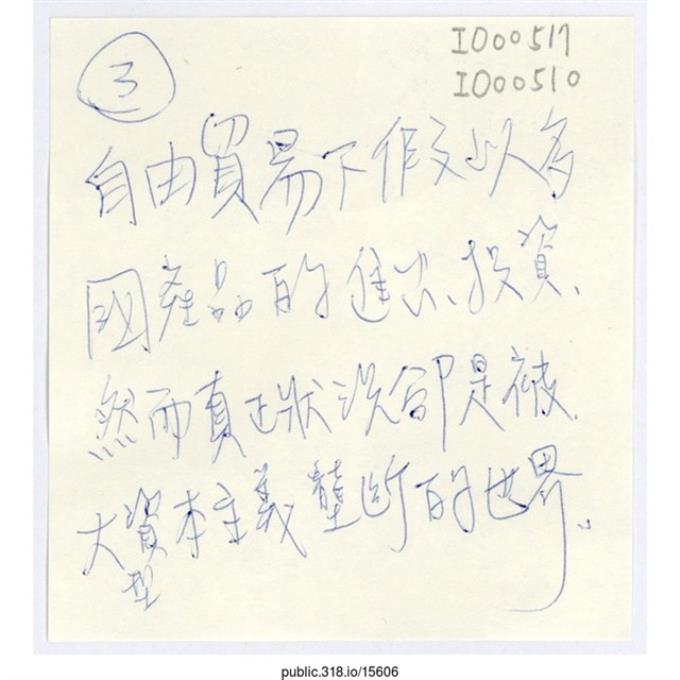 3
IO00517
IO00510
自由貿易下作文以多
國產品的進出、投資、
然而真正狀況卻是被
大資本主義壟斷的世界、
型
public.318.io/15606